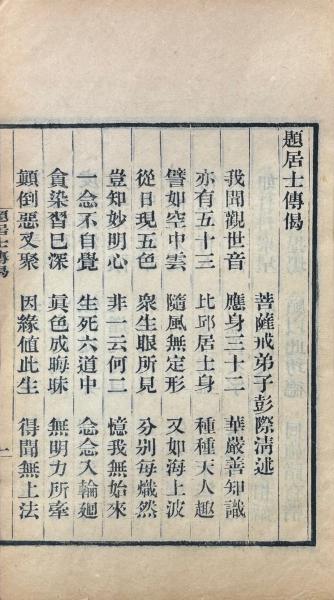 題居士傳偈
菩薩戒弟子彭際淸述
我聞觀世音　應身三十二　華嚴善知識
亦有五十三　比邱居士身　種種天人趣
譬如空中雲　隨風無定形　又如海上波
從日現五色　衆生眼所見　分別每熾然
豈知妙明心　非一云何二　憶我無始來
一念不自覺　生死六道中　念念入輪廻
貪染習已深　眞色成晦昧　無明力所牽
顚倒惡叉聚　因緣値此生　得聞無上法
題居士傳偈
一